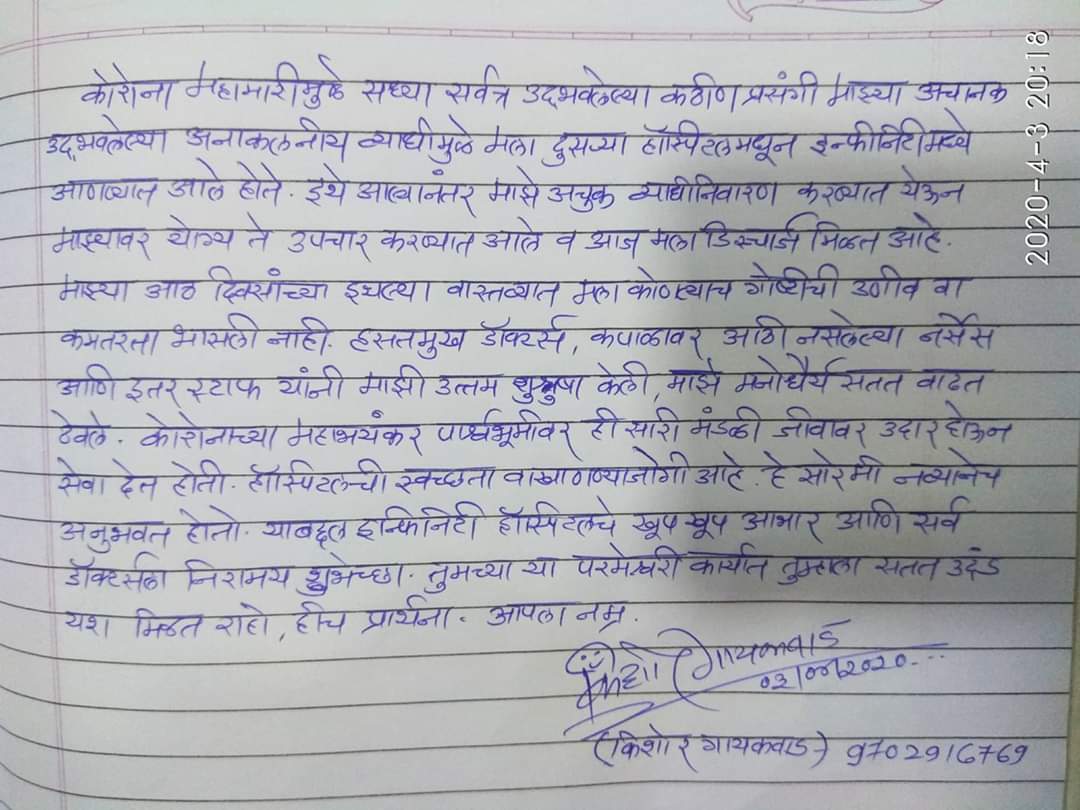 कोरोना महामारीमुळे सध्या सर्वत्र उद्भवलेल्या कठीण प्रसंगी माझ्या अचानक
उद्भवलेल्या अनाकलनीय व्याधीमुळे मला दुसऱ्या हॉस्पिटलमधून इन्फीनिटीमध्ये
आणण्यात आले होते. इथे आल्यानंतर माझे अचुक व्याधीनिवारण करण्यात येऊन
माझ्यावर योग्य ते उपचार करण्यात आले व आज मला डिस्चार्ज मिळत आहे.
माझ्या आठ दिवसांच्या इथल्या वास्तव्यात मला कोणत्याच गोष्टीची उणीव वा
कमतरता भासली नाही. हसतमुख डॉक्टर्स, कपाळावर आठी नसलेल्या नर्सेस
आणि इतर स्टाफ यांनी माझी उत्तम शुश्रुषा केली, माझे मनोधैर्य सतत वाढत
ठेवले. कोरोनाच्या महाभयंकर पार्श्वभूमीवर ही सारी मंडळी जीवावर उदार होऊन
सेवा देत होती. हॉस्पिटलची स्वच्छता वाखाणण्याजोगी आहे. हे सारे मी नव्यानेच
अनुभवत होतो. याबद्दल इन्फिनिटी हॉस्पिटलचे खूप खूप आभार आणि सर्व
डॉक्टर्सला निरामय शुभेच्छा. तुमच्या या परमेश्वरी कार्यात तुम्हाला सतत उदंड
यश मिळत राहो, हीच प्रार्थना. आपला नम्र.
गायकवाड
03/04/2020...
(किशोर गायकवाड) 9702916769
2020-4-3 20:18